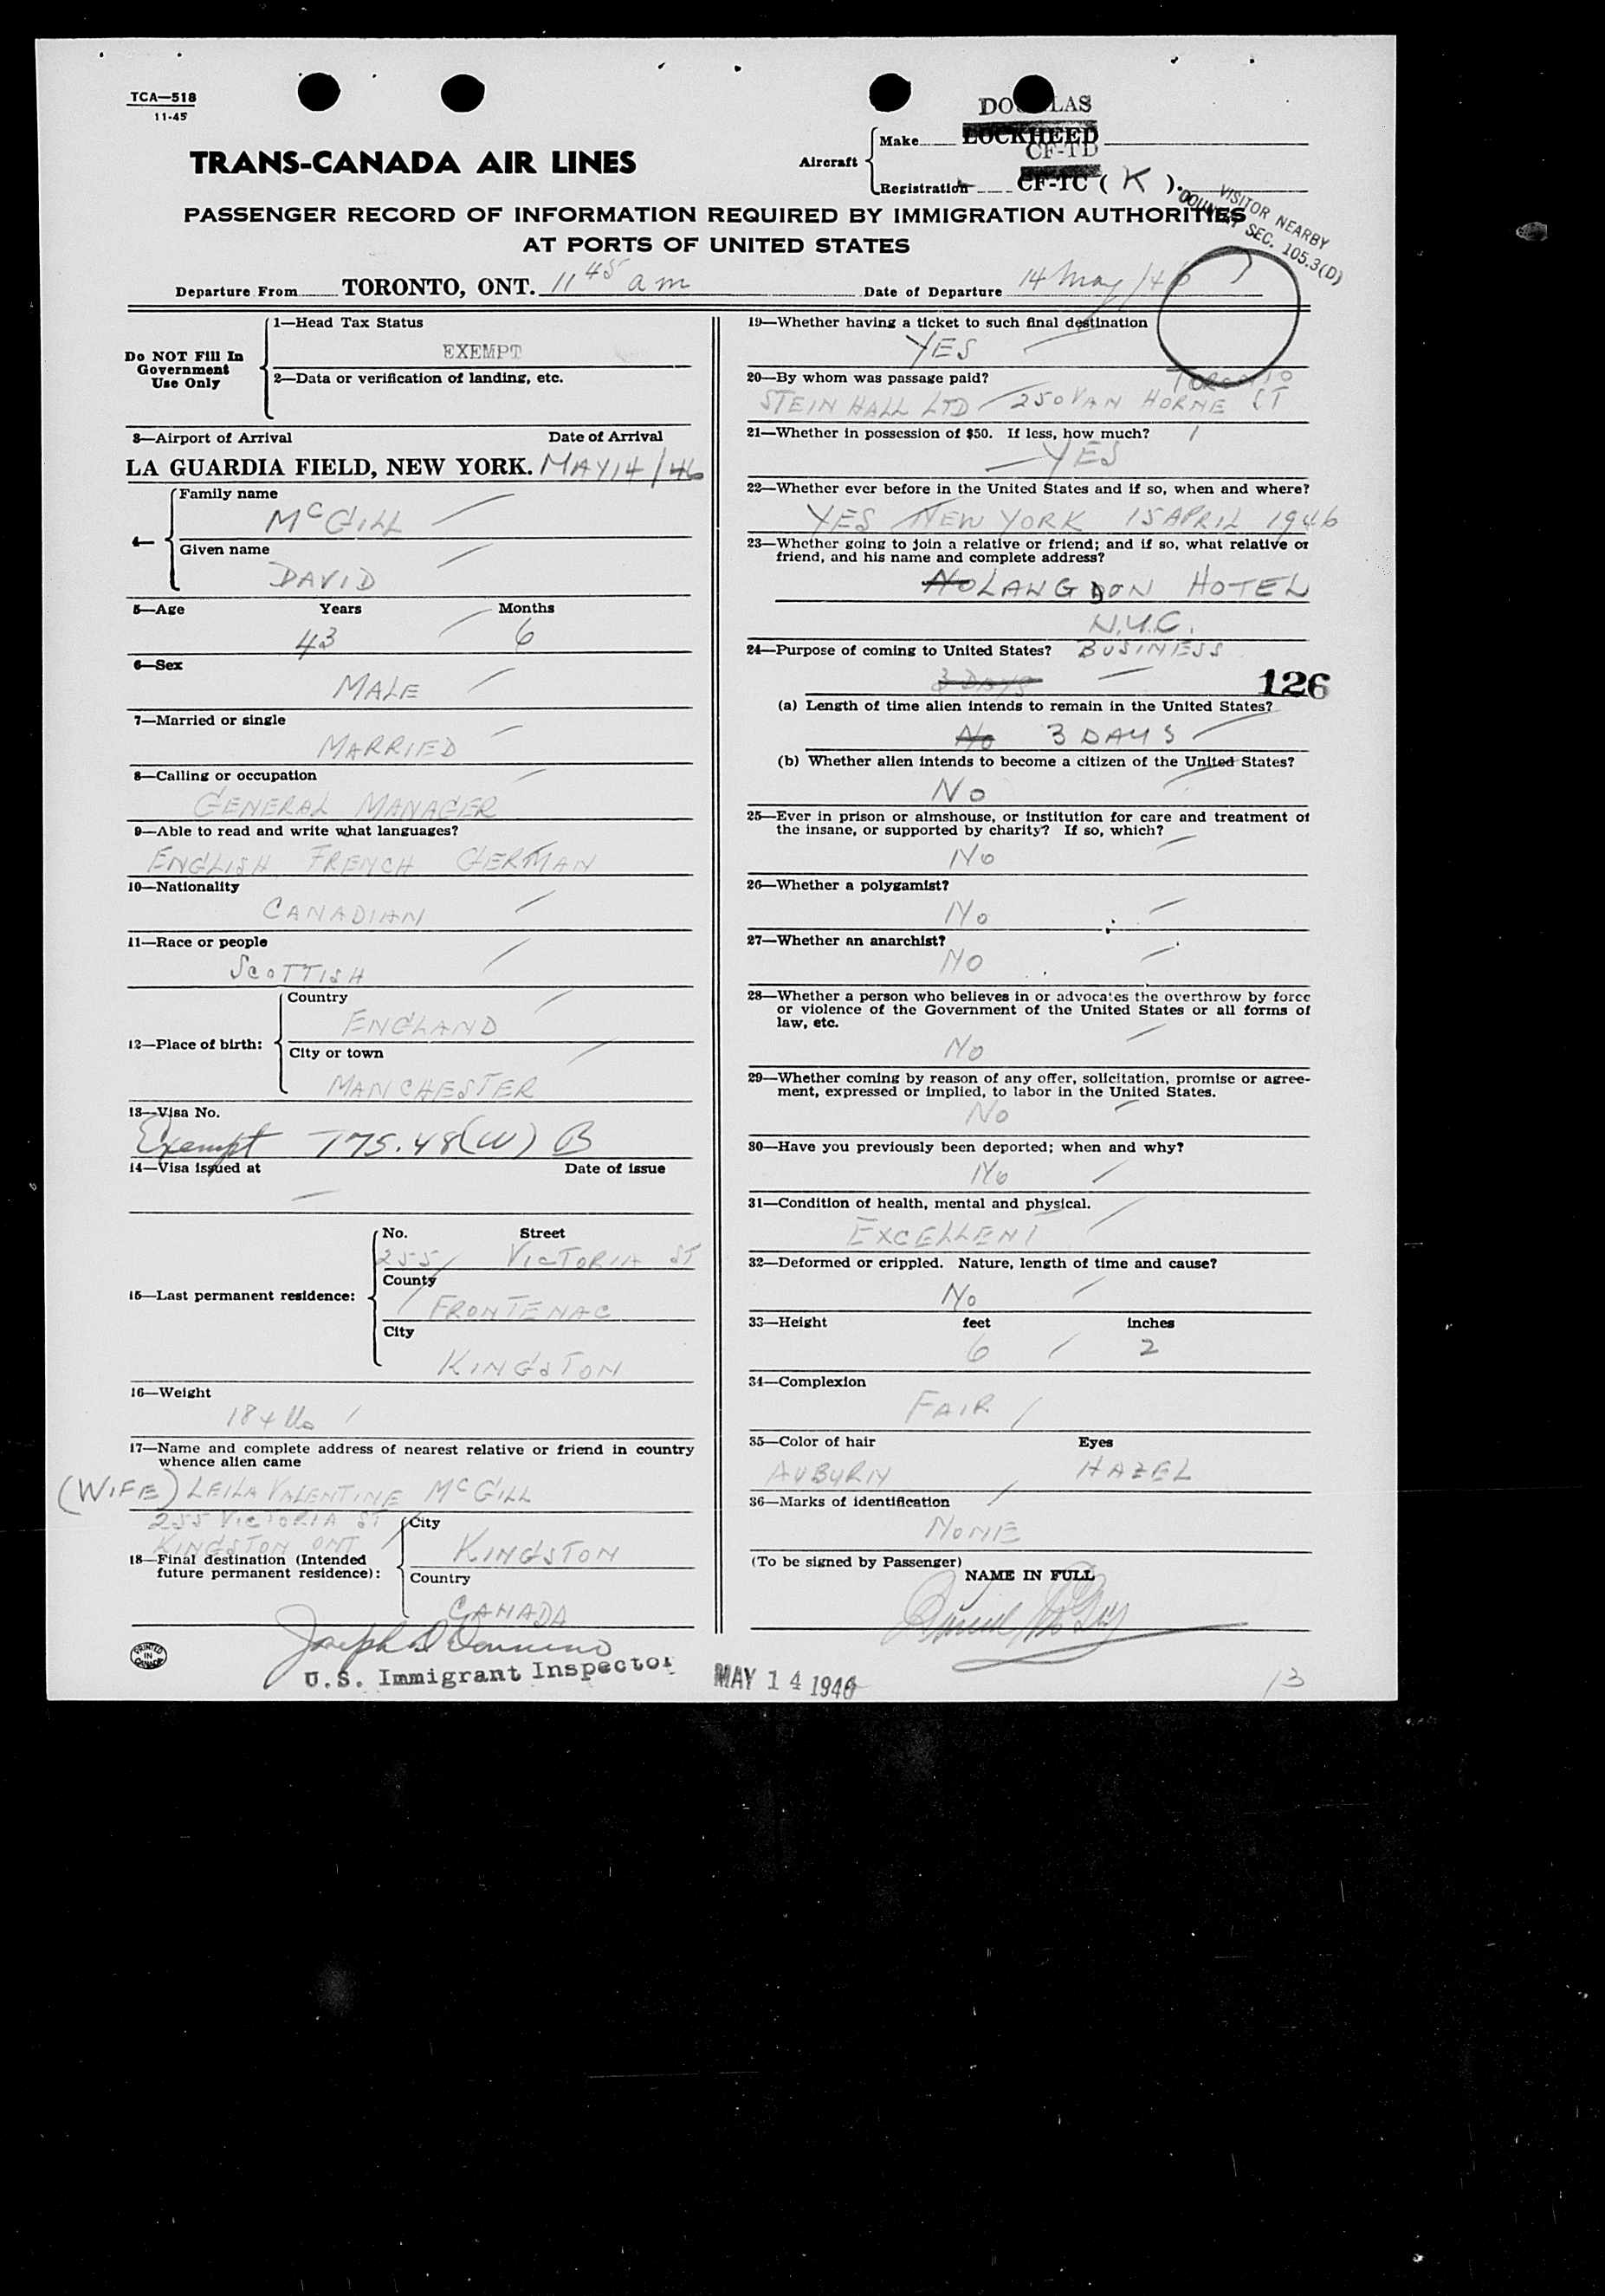 TCA—518
11-45
DOUGLAS
TRANS-CANADA AIR LINES
Aircraft
Make LOCKHEED
CF-TD
Registration CF-TC ( K ).
VISITOR NEARBY
COUNTRY SEC. 105.3(D)
PASSENGER RECORD OF INFORMATION REQUIRED BY IMMIGRATION AUTHORITIES
AT PORTS OF UNITED STATES
Departure From TORONTO, ONT. 11 45 am Date of Departure 14 May/46
Do NOT Fill In
Government
Use Only
1—Head Tax Status
EXEMPT
2—Data or verification of landing, etc.
3—Airport of Arrival Date of Arrival
LA GUARDIA FIELD, NEW YORK. MAY 14/46
4—
Family name
McGILL
Given name
DAVID
5—Age Years Months
43 6
6—Sex
MALE
7—Married or single
MARRIED
8—Calling or occupation
GENERAL MANAGER
9—Able to read and write what languages?
ENGLISH FRENCH GERMAN
10—Nationality
CANADIAN
11—Race or people
SCOTTISH
12—Place of birth:
Country
ENGLAND
City or town
MANCHESTER
13—Visa No.
Exempt 175.48(W) B
14—Visa issued at Date of issue
15—Last permanent residence:
No. Street
255 VICTORIA ST
County
FRONTENAC
City
KINGSTON
16—Weight
184 lbs
17—Name and complete address of nearest relative or friend in country
whence alien came
(WIFE) LEILA VALENTINE McGILL
255 VICTORIA ST
KINGSTON ONT
18—Final destination (Intended
future permanent residence):
City
KINGSTON
Country
CANADA
U.S. Immigrant Inspector
PRINTED
IN
CANADA
19—Whether having a ticket to such final destination
YES
20—By whom was passage paid?
TORONTO
STEIN HALL LTD 250 VAN HORNE ST
21—Whether in possession of $50. If less, how much?
YES
22—Whether ever before in the United States and if so, when and where?
YES NEW YORK 15 APRIL 1946
23—Whether going to join a relative or friend; and if so, what relative or
friend, and his name and complete address?
No LANGDON HOTEL
N.Y.C.
24—Purpose of coming to United States? BUSINESS
3 DAYS
126
(a) Length of time alien intends to remain in the United States?
No 3 DAYS
(b) Whether alien intends to become a citizen of the United States?
No
25—Ever in prison or almshouse, or institution for care and treatment of
the insane, or supported by charity? If so, which?
No
26—Whether a polygamist?
No
27—Whether an anarchist?
NO
28—Whether a person who believes in or advocates the overthrow by force
or violence of the Government of the United States or all forms of
law, etc.
No
29—Whether coming by reason of any offer, solicitation, promise or agree-
ment, expressed or implied, to labor in the United States.
No
30—Have you previously been deported; when and why?
No
31—Condition of health, mental and physical.
EXCELLENT
32—Deformed or crippled. Nature, length of time and cause?
No
33—Height feet inches
6 2
34—Complexion
FAIR
35—Color of hair Eyes
AUBURN HAZEL
36—Marks of identification
NONE
(To be signed by Passenger)
NAME IN FULL
David McGill
MAY 14 1946
13